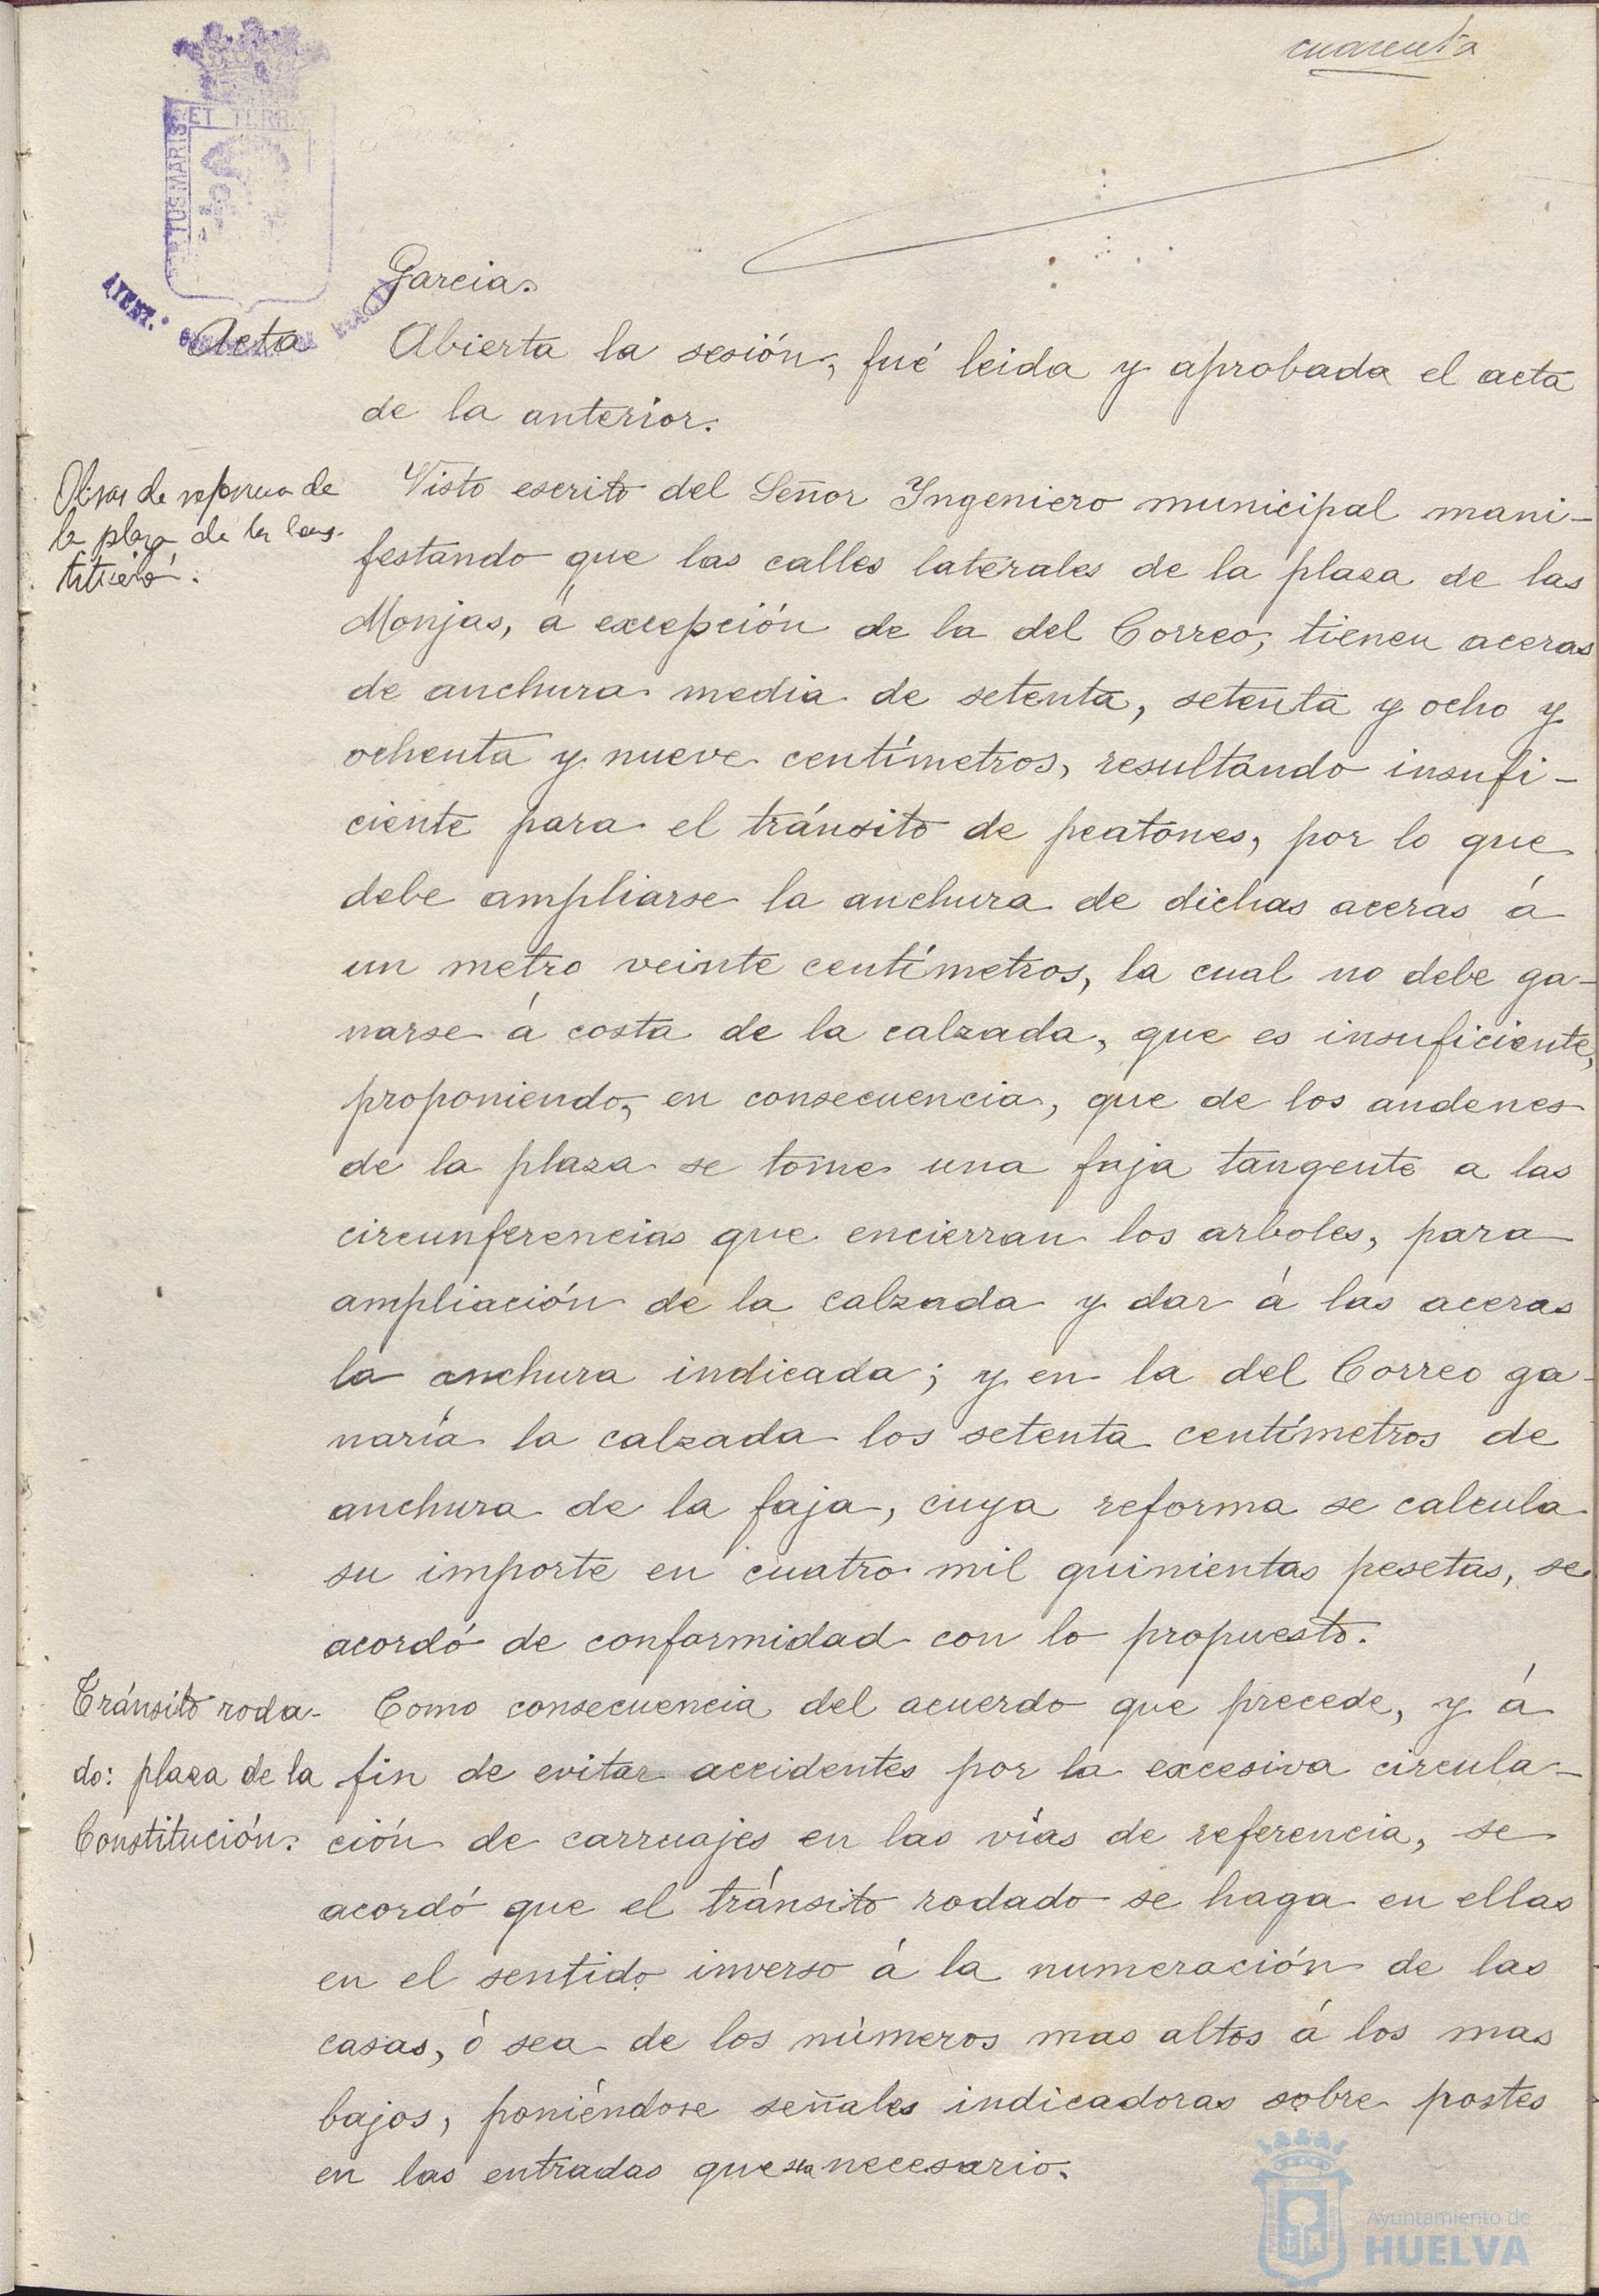 cuarenta
ET TERRÆ
TUS MARIS
AYUNT.
Garcia.
Acta
Abierta la sesión, fué leida y aprobada el acta
de la anterior.
Obras de reforma de
la plaza de la Cons-
titución.
Visto escrito del Señor Yngeniero municipal mani-
festando que las calles laterales de la plaza de las
Monjas, á excepción de la del Correo, tienen aceras
de anchura media de setenta, setenta y ocho y
ochenta y nueve centímetros, resultando insufi-
ciente para el tránsito de peatones, por lo que
debe ampliarse la anchura de dichas aceras á
un metro veinte centímetros, la cual no debe ga-
narse á costa de la calzada, que es insuficiente,
proponiendo, en consecuencia, que de los andenes
de la plaza se tome una faja tangente a las
circunferencias que encierran los arboles, para
ampliación de la calzada y dar á las aceras
la anchura indicada; y en la del Correo ga-
naría la calzada los setenta centímetros de
anchura de la faja, cuya reforma se calcula
su importe en cuatro mil quinientas pesetas, se
acordó de conformidad con lo propuesto.
Tránsito roda-
do: plaza de la
Constitución.
Como consecuencia del acuerdo que precede, y á
fin de evitar accidentes por la excesiva circula-
ción de carruajes en las vías de referencia, se
acordó que el tránsito rodado se haga en ellas
en el sentido inverso á la numeración de las
casas, ó sea de los números mas altos á los mas
bajos, poniéndose señales indicadoras sobre postes
en las entradas que sea necesario.
Ayuntamiento de
HUELVA